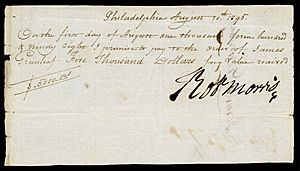 Philadelphia August 10th 1795
On the first day of August one thousand seven hundred
& ninety eight I promise to pay to the order of James
Greenleaf Five Thousand Dollars for Value received
Robt Morris